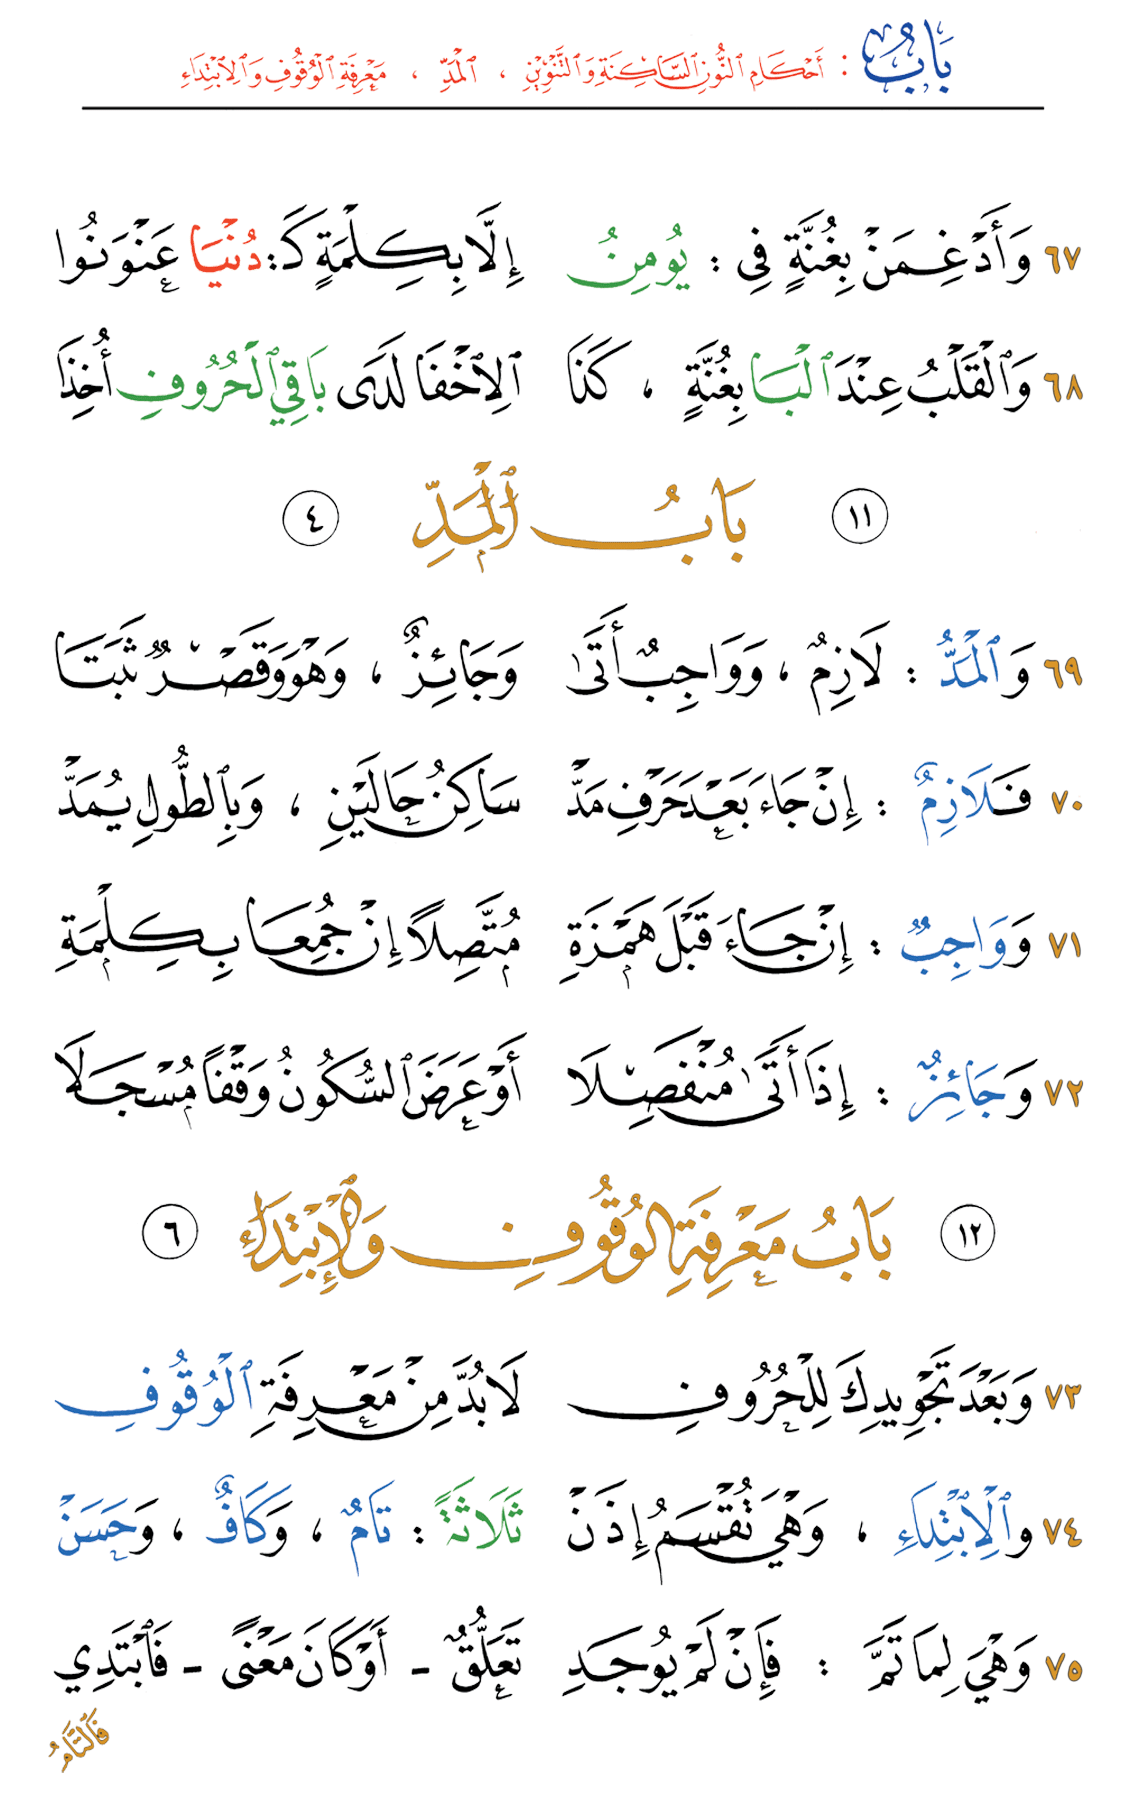 بَابُ : أَحْكَامِ النُّونِ السَّاكِنَةِ وَالتَّنْوِينِ ، الْمَدِّ ، مَعْرِفَةِ الْوُقُوفِ وَالِابْتِدَاءِ
٦٧ وَأَدْغِمَنْ بِغُنَّةٍ فِي : يُومِنُ إِلَّا بِكِلْمَةٍ كَ: دُنْيَا عَنْوَنُوا
٦٨ وَالْقَلْبُ عِنْدَ الْبَا بِغُنَّةٍ ، كَذَا الِاخْفَا لَدَى بَاقِي الْحُرُوفِ أُخِذَا
١١ بَابُ الْمَدِّ ٤
٦٩ وَالْمَدُّ : لَازِمٌ ، وَوَاجِبٌ أَتَى وَجَائِزٌ ، وَهْوَ وَقَصْرٌ ثَبَتَا
٧٠ فَلَازِمٌ : إِنْ جَاءَ بَعْدَ حَرْفِ مَدّْ سَاكِنُ حَالَيْنِ ، وَبِالطُّولِ يُمَدّْ
٧١ وَوَاجِبٌ : إِنْ جَاءَ قَبْلَ هَمْزَةِ مُتَّصِلًا إِنْ جُمِعَا بِكِلْمَةِ
٧٢ وَجَائِزٌ : إِذَا أَتَى مُنْفَصِلَا أَوْ عَرَضَ السُّكُونُ وَقْفًا مُسْجَلَا
١٢ بَابُ مَعْرِفَةِ الْوُقُوفِ وَالِابْتِدَاءِ ٦
٧٣ وَبَعْدَ تَجْوِيدِكَ لِلْحُرُوفِ لَا بُدَّ مِنْ مَعْرِفَةِ الْوُقُوفِ
٧٤ وَالِابْتِدَاءِ ، وَهْيَ تُقْسَمُ إِذَنْ ثَلَاثَةً : تَامٌ ، وَكَافٌ ، وَحَسَنْ
٧٥ وَهْيَ لِمَا تَمَّ : فَإِنْ لَمْ يُوجَدِ تَعَلُّقٌ - أَوْ كَانَ مَعْنًى - فَابْتَدِي
فَالتَّامُ